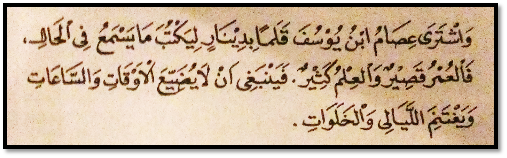 وَاشْتَرَى عِصَامُ ابْنُ يُوْسُفَ قَلَمًا بِدِيْنَارٍ لِيَكْتُبَ مَا يَسْمَعُ فِى الْحَالِ.
فَالْعُمْرُ قَصِيْرٌ وَالْعِلْمُ كَثِيْرٌ. فَيَنْبَغِى اَنْ لَا يُضَيِّعَ الْاَوْقَاتِ وَالسَّاعَاتِ
وَيَغْتَنِمَ اللَّيَالِى وَالْخَلَوَاتِ.